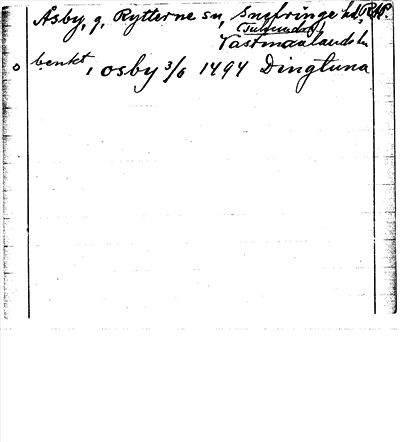 Åsby, g, Rytterne sn, Snefringe hd,
(Tuhundra)
Västmanlands l.
benkt, osby 3/6 1494 Dingtuna